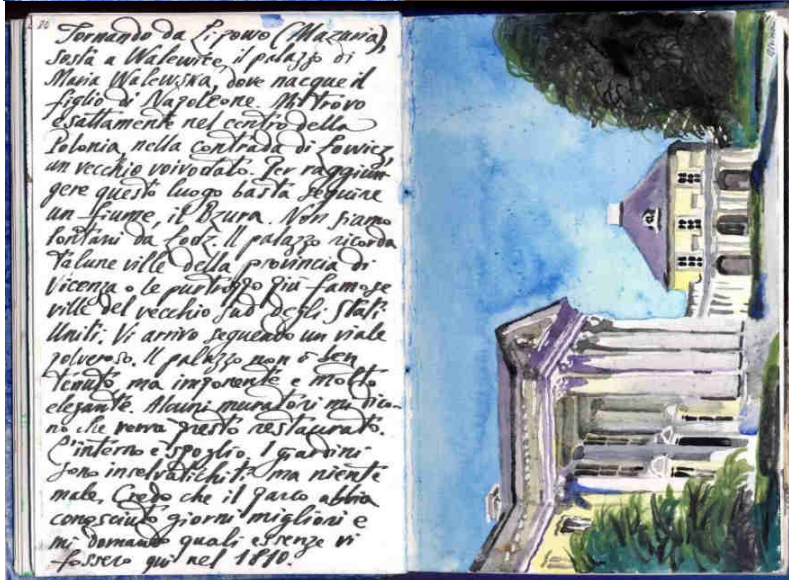 Tornando da Lipowo (Mazuria),
sosta a Walewice, il palazzo di
Maria Walewska, dove nacque il
figlio di Napoleone. Mi trovo
esattamente nel centro della
Polonia, nella contrada di Lowicz,
un vecchio voivodato. Per raggiun-
gere questo luogo basta seguire
un fiume, il Bzura. Non siamo
lontani da Lodz. Il palazzo ricorda
talune ville della provincia di
Vicenza o le purtroppo più famose
ville del vecchio Sud degli Stati
Uniti. Vi arrivo seguendo un viale
polveroso. Il palazzo non è ben
tenuto, ma imponente e molto
elegante. Alcuni muratori mi dico-
no che verrà presto restaurato.
L'interno è spoglio. I giardini
sono inselvatichiti ma niente
male. Credo che il parco abbia
conosciuto giorni migliori e
mi domando quali essenze vi
fossero qui nel 1810.